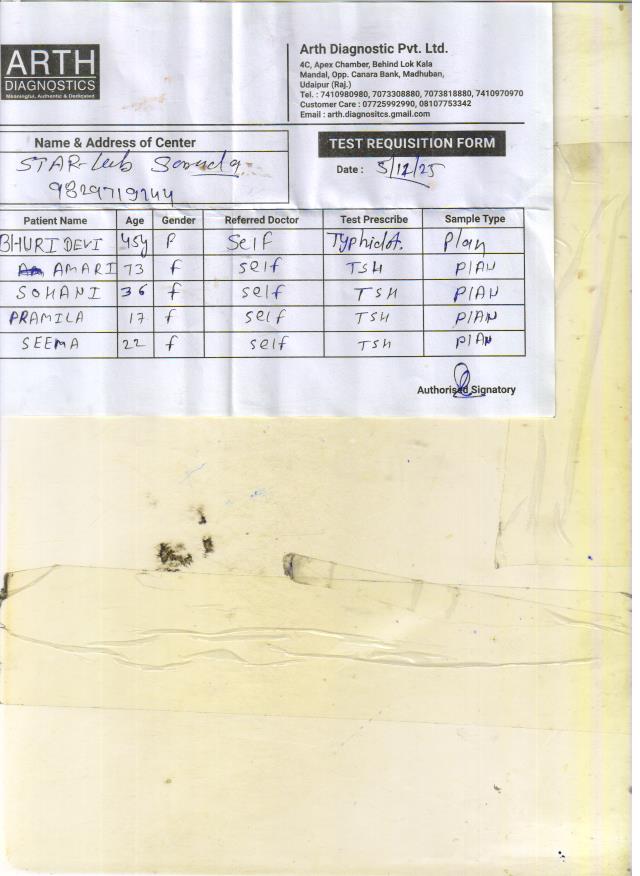 ARTH
DIAGNOSTICS
Meaningful, Authentic & Dedicated
Arth Diagnostic Pvt. Ltd.
4C, Apex Chamber, Behind Lok Kala
Mandal, Opp. Canara Bank, Madhuban,
Udaipur (Raj.)
Tel. : 7410980980, 7073308880, 7073818880, 7410970970
Customer Care : 07725992990, 08107753342
Email : arth.diagnositcs.gmail.com
Name & Address of Center
STAR-Lab
9829719244
TEST REQUISITION FORM
Date : 5/12/25
Patient Name Age Gender Referred Doctor Test Prescribe Sample Type
BHURI DEVI 45y F Self Typhidot. Plan
AMARI 73 f self TSH PlAN
SOHANI 36 f self TSH PlAN
PRAMILA 17 f self TSH PlAN
SEEMA 22 f self TSH PlAN
Authorised Signatory